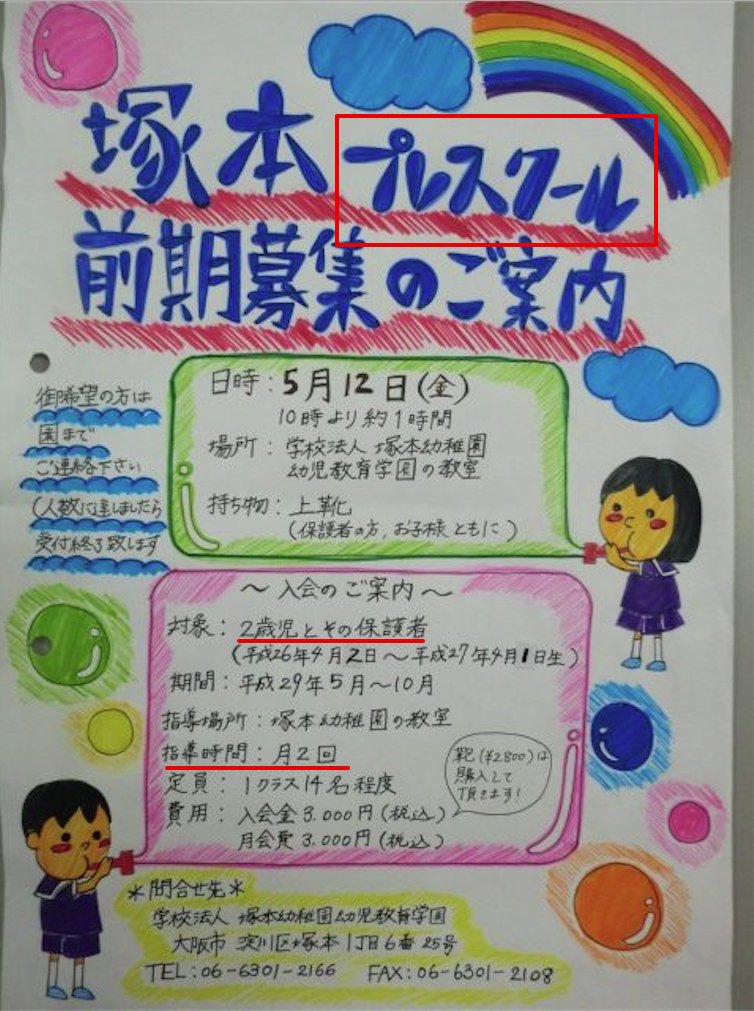 塚本プレスクール
前期募集のご案内
御希望の方は
園まで
ご連絡下さい
(人数に達しましたら
受付終了致します
日時：5月12日(金)
10時より約1時間
場所：学校法人 塚本幼稚園
幼児教育学園の教室
持ち物：上靴
(保護者の方、お子様ともに)
～入会のご案内～
対象：2歳児とその保護者
(平成26年4月2日～平成27年4月1日生)
期間：平成29年5月～10月
指導場所：塚本幼稚園の教室
指導時間：月2回
定員：1クラス14名程度
費用：入会金 3.000円(税込)
月会費 3.000円(税込)
靴(¥2800)は
購入して
頂きます!
＊問合せ先＊
学校法人 塚本幼稚園幼児教育学園
大阪市 淀川区塚本1丁目6番25号
TEL：06-6301-2166 FAX：06-6301-2108